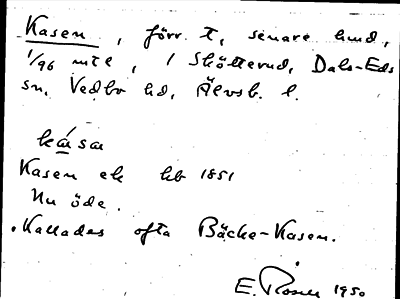 Kasen, förr t, senare lmd,
1/96 mtl, i Skötterud, Dals-Eds
sn, Vedbo hd, Älvsb. l.
ká̱sa
Kasen ek hb 1851
Nu öde.
Kallades ofta Bäcke-Kasen.
E. Rosén 1950